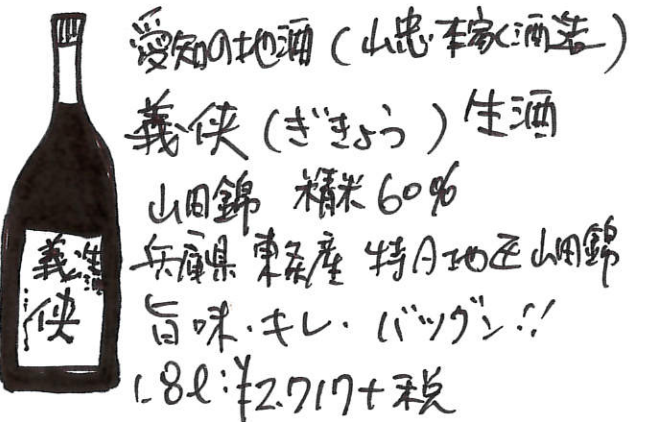 愛知の地酒(山忠本家酒造)
義侠(ぎきょう)生酒
山田錦 精米60%
兵庫県 東条産 特A地区山田錦
旨味・キレ・バツグン!!
1.8ℓ:¥2.717+税
義侠